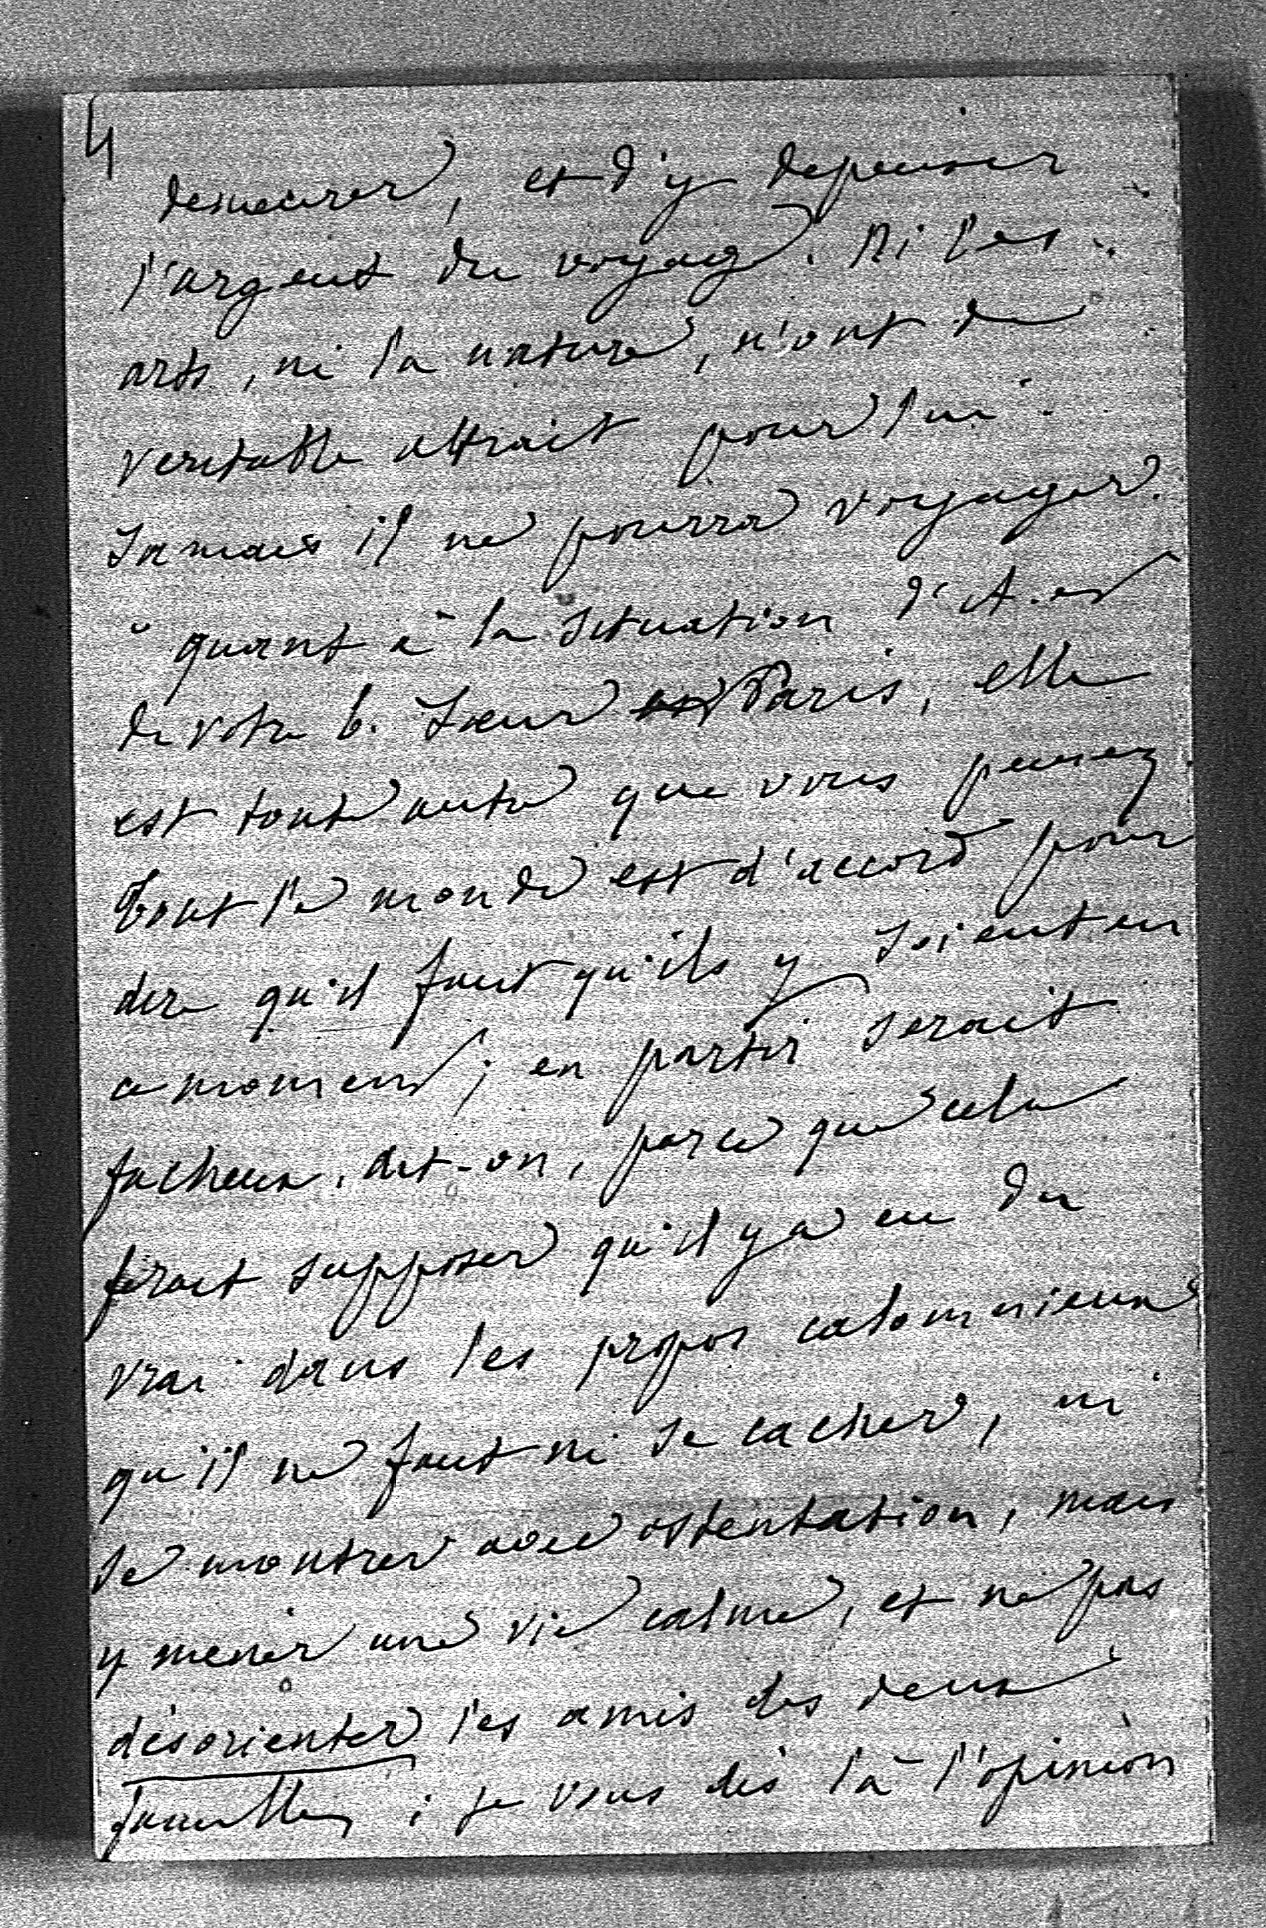 4
demeurer, et d'y depenser
l'argent du voyage. Ni les
arts, ni la nature, n'ont de
veritable attrait pour lui.
Jamais il ne pourra voyager.
quant à la situation d'A. et
de votre b. Sœur Paris, elle
est toute autre que vous pensez
tout le monde est d'accord pour
dire qu'il faut qu'ils y soient en
ce moment ; en partir serait
facheux, dit-on, parce que cela
ferait supposer qu'il y a eu du
vrai dans les propos calomnieux
qu'il ne faut ni se cacher, ni
se montrer avec ostentation, mais
y mener une vie calme, et ne pas
désorienter les amis des deux
familles ; je vous dis là l'opinion